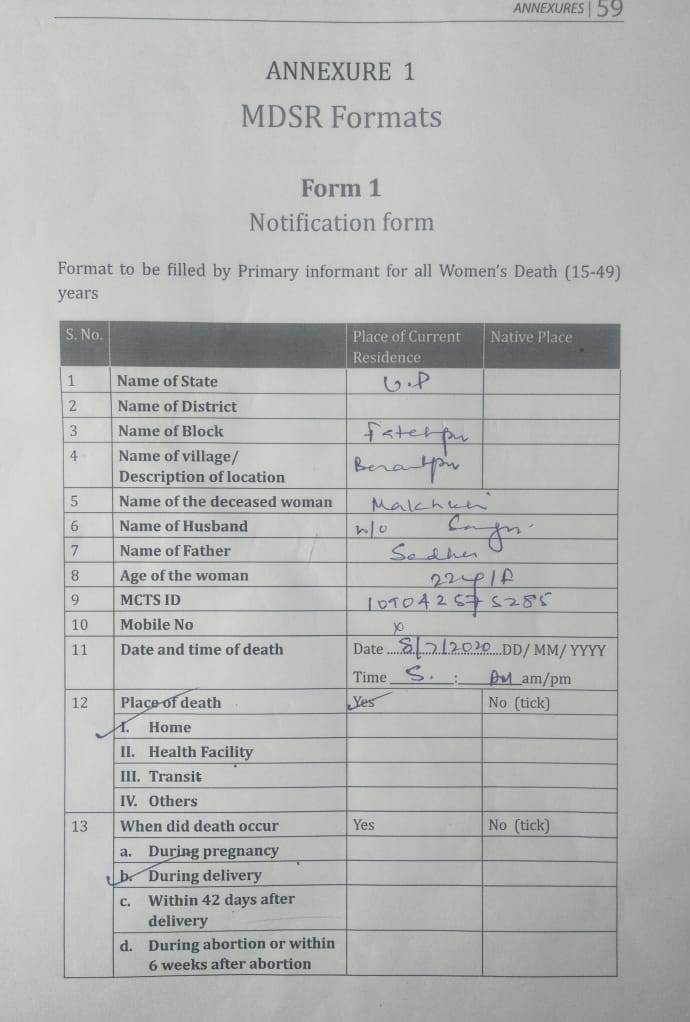 ANNEXURES | 59
ANNEXURE 1
MDSR Formats
Form 1
Notification form
Format to be filled by Primary informant for all Women's Death (15-49)
years
S. No. Place of Current Residence Native Place
1 Name of State U.P
2 Name of District
3 Name of Block
4 Name of village/
Description of location
5 Name of the deceased woman
6 Name of Husband w/o
7 Name of Father
8 Age of the woman
9 MCTS ID
10 Mobile No x
11 Date and time of death Date 8/7/2020 DD/ MM/ YYYY
Time 5. : PM am/pm
12 Place of death Yes No (tick)
I. Home
II. Health Facility
III. Transit
IV. Others
13 When did death occur Yes No (tick)
a. During pregnancy
b. During delivery
c. Within 42 days after
delivery
d. During abortion or within
6 weeks after abortion